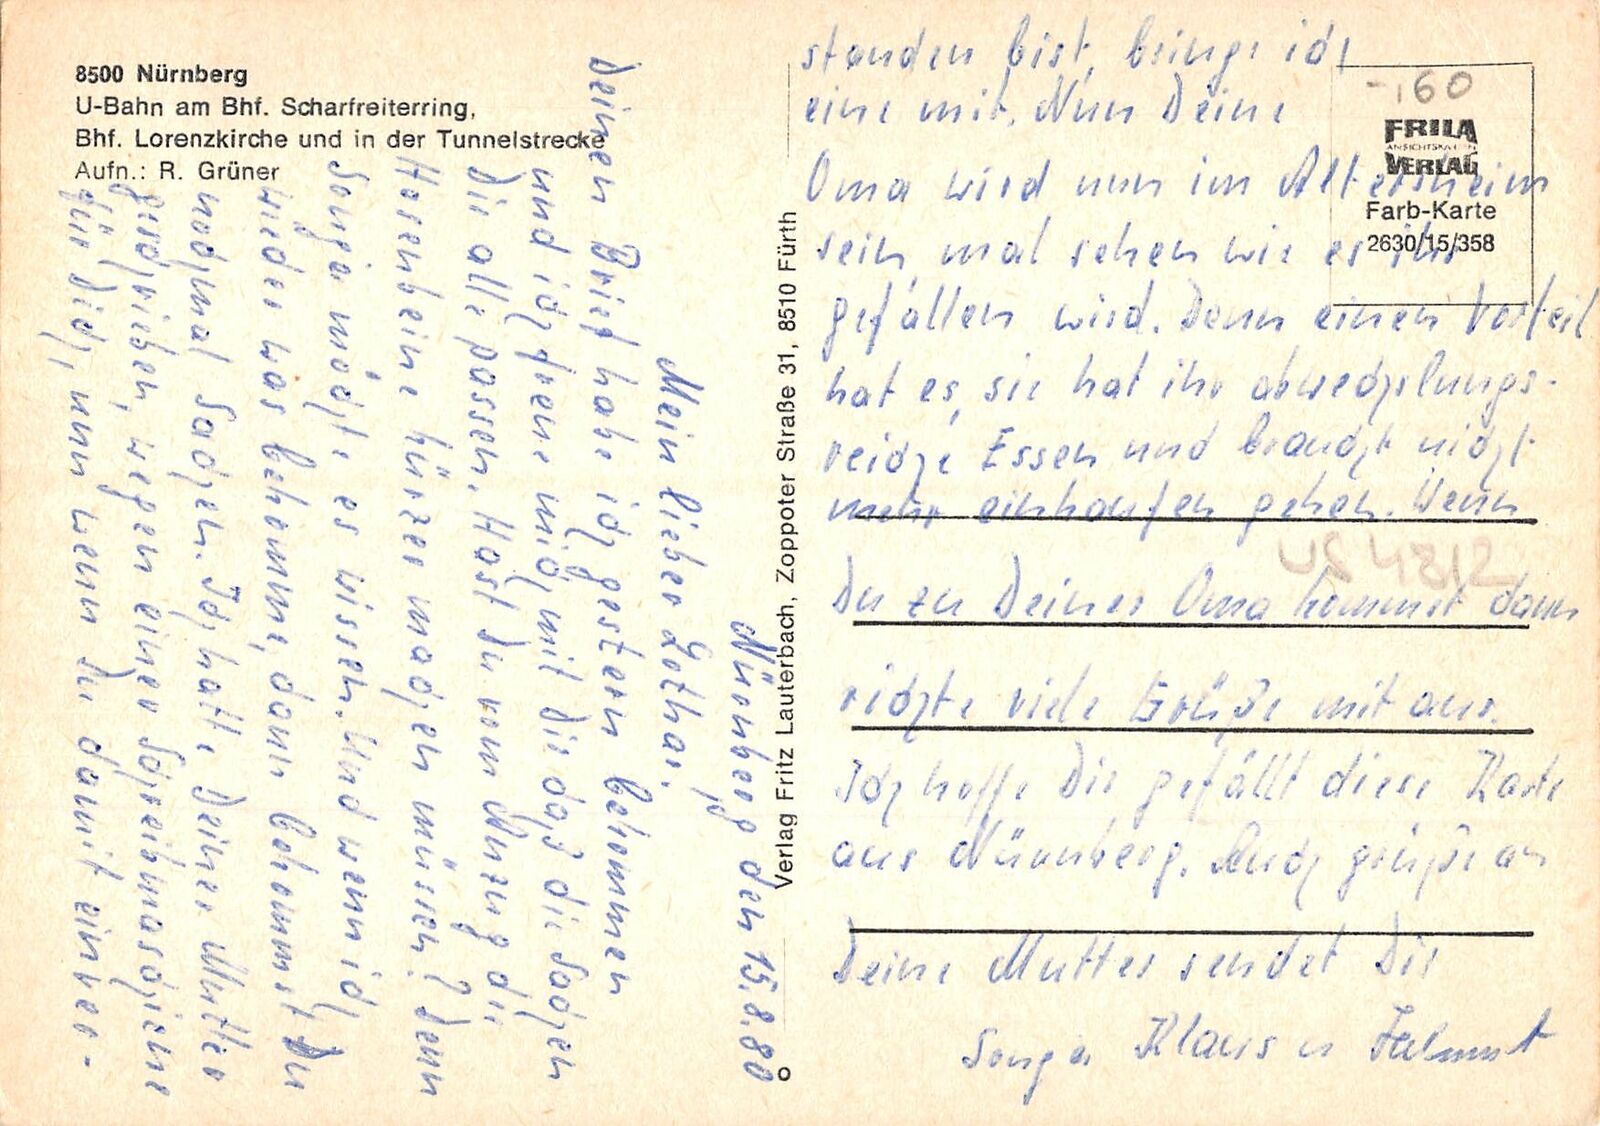 8500 Nürnberg
U-Bahn am Bhf. Scharfreiterring,
Bhf. Lorenzkirche und in der Tunnelstrecke
Aufn.: R. Grüner
Nürnberg den 15.8.80
Mein lieber Lothar.
Deinen Brief habe ich gestern bekommen
und ich freue mich, mit die daß die Sachen
Dir alle passen. Hast Du vom Anzug die
Hosenbeine kürzer machen müssen? Denn
Sonja möchte es wissen. Und wenn ich
wieder was bekomme, dann bekommst Du
nochmal Sachen. Ich hatte Deiner Mutter
geschrieben, wegen einer Schreibmaschiene
für Dich, nun wenn Du damit einver-
Verlag Fritz Lauterbach, Zoppoter Straße 31, 8510 Fürth
standen bist, bringe ich
eine mit. Nun Deine
Oma wird nun im Altersheim
sein, mal sehen wie es ihr
gefallen wird. Denn einen Vorteil
hat es, sie hat ihr abwechslungs-
reiche Essen und braucht nicht
mehr einkaufen gehen. Wenn
Du zu Deiner Oma kommst dann
richte viele Grüße mit aus.
Ich hoffe Dir gefällt diese Karte
aus Nürnberg. Auch grüße an
Deine Mutter sendet Dir
Sonja Klaus u
-,60
FRILA
ANSICHTSKARTEN
VERLAG
Farb-Karte
2630/15/358
US 4812